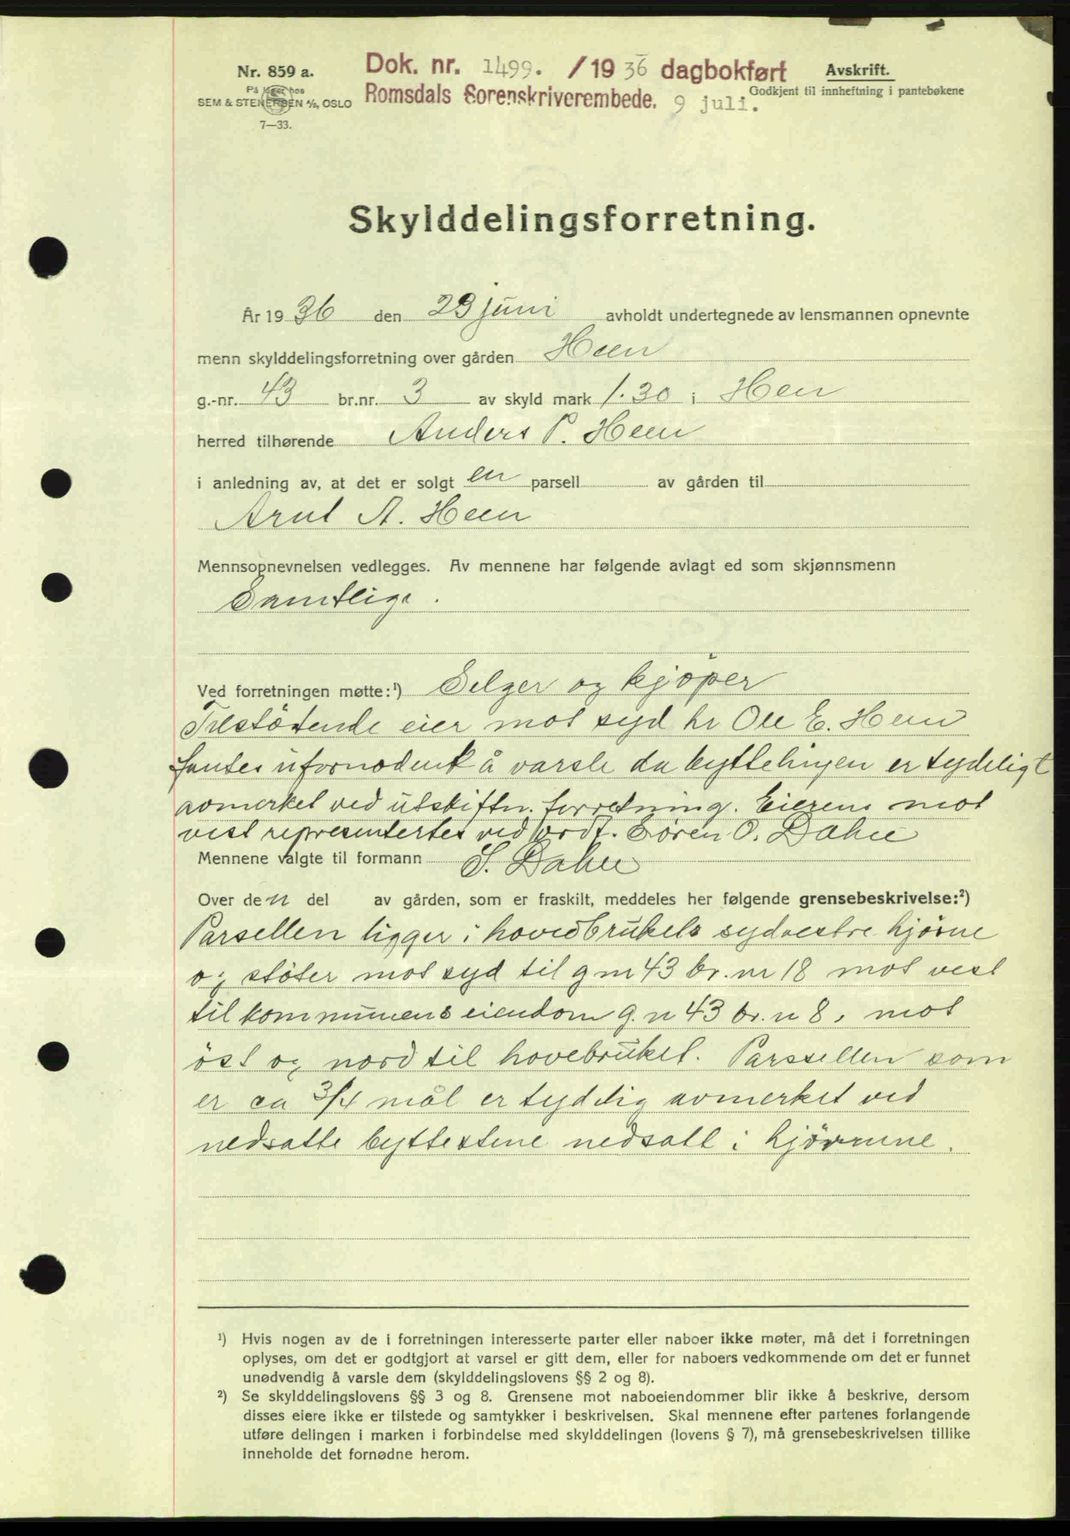 Nr. 859 a.
På lager hos
SEM & STENERSEN A/S, OSLO
7—33.
Dok. nr. 1499. /1936 dagbokført
Romsdals Sorenskriverembede. 9 juli.
Avskrift.
Godkjent til innheftning i pantebøkene
Skylddelingsforretning.
År 1936 den 29 juni avholdt undertegnede av lensmannen opnevnte
menn skylddelingsforretning over gården Heen
g.-nr. 43 br.nr. 3 av skyld mark 1.30 i Hen
herred tilhørende Anders P. Heen
i anledning av, at det er solgt en parsell av gården til
Arnt A. Heen
Mennsopnevnelsen vedlegges. Av mennene har følgende avlagt ed som skjønnsmenn
Samtlige.
Ved forretningen møtte:¹) Selger og kjöper
Tilstötende eier mot syd hr Ole E. Heen
fantes ufornödent å varsle da byttelinjen er tydeligt
avmerket ved utskiftn. forretning. Eierens mot
vest representertes ved ordf. Sören O. Dahle
Mennene valgte til formann S. Dahle
Over den del av gården, som er fraskilt, meddeles her følgende grensebeskrivelse:²)
Parsellen ligger i hovedbrukets sydvestre hjörne
og stöter mot syd til g nr 43 br. nr 18 mot vest
til kommunens eiendom g. n 43 br. n 8, mot
öst og nord til hovebruket. Parsellen som
er ca 3/4 mål er tydelig avmerket ved
nedsatte byttestene nedsatt i hjörnene.
¹) Hvis nogen av de i forretningen interesserte parter eller naboer ikke møter, må det i forretningen
oplyses, om det er godtgjort at varsel er gitt dem, eller for naboers vedkommende om det er funnet
unødvendig å varsle dem (skylddelingslovens §§ 2 og 8).
²) Se skylddelingslovens §§ 3 og 8. Grensene mot naboeiendommer blir ikke å beskrive, dersom
disses eiere ikke er tilstede og samtykker i beskrivelsen. Skal mennene efter partenes forlangende
utføre delingen i marken i forbindelse med skylddelingen (lovens § 7), må grensebeskrivelsen tillike
inneholde det fornødne herom.